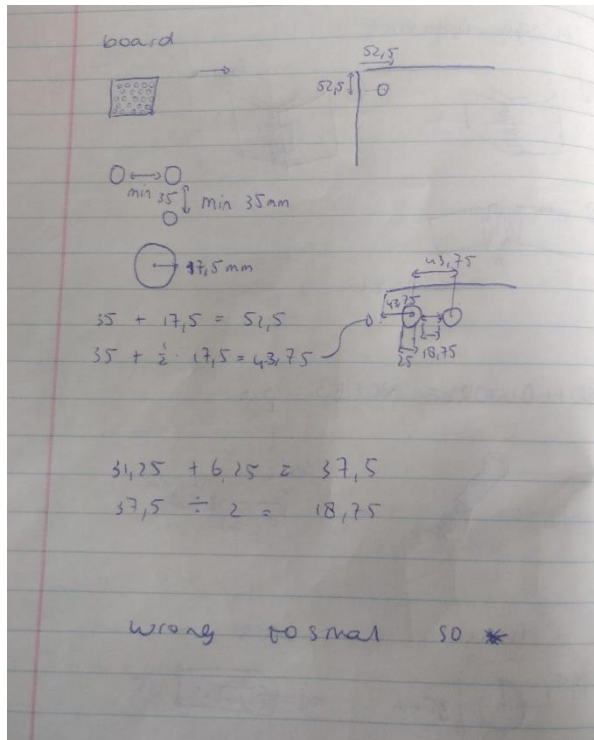 board
52,5
52,5
min 35
min 35mm
17,5 mm
43,75
43,75
35 + 17,5 = 52,5
35 + ½ · 17,5 = 43,75
25
18,75
31,25 + 6,25 = 37,5
37,5 ÷ 2 = 18,75
wrong to smal so *